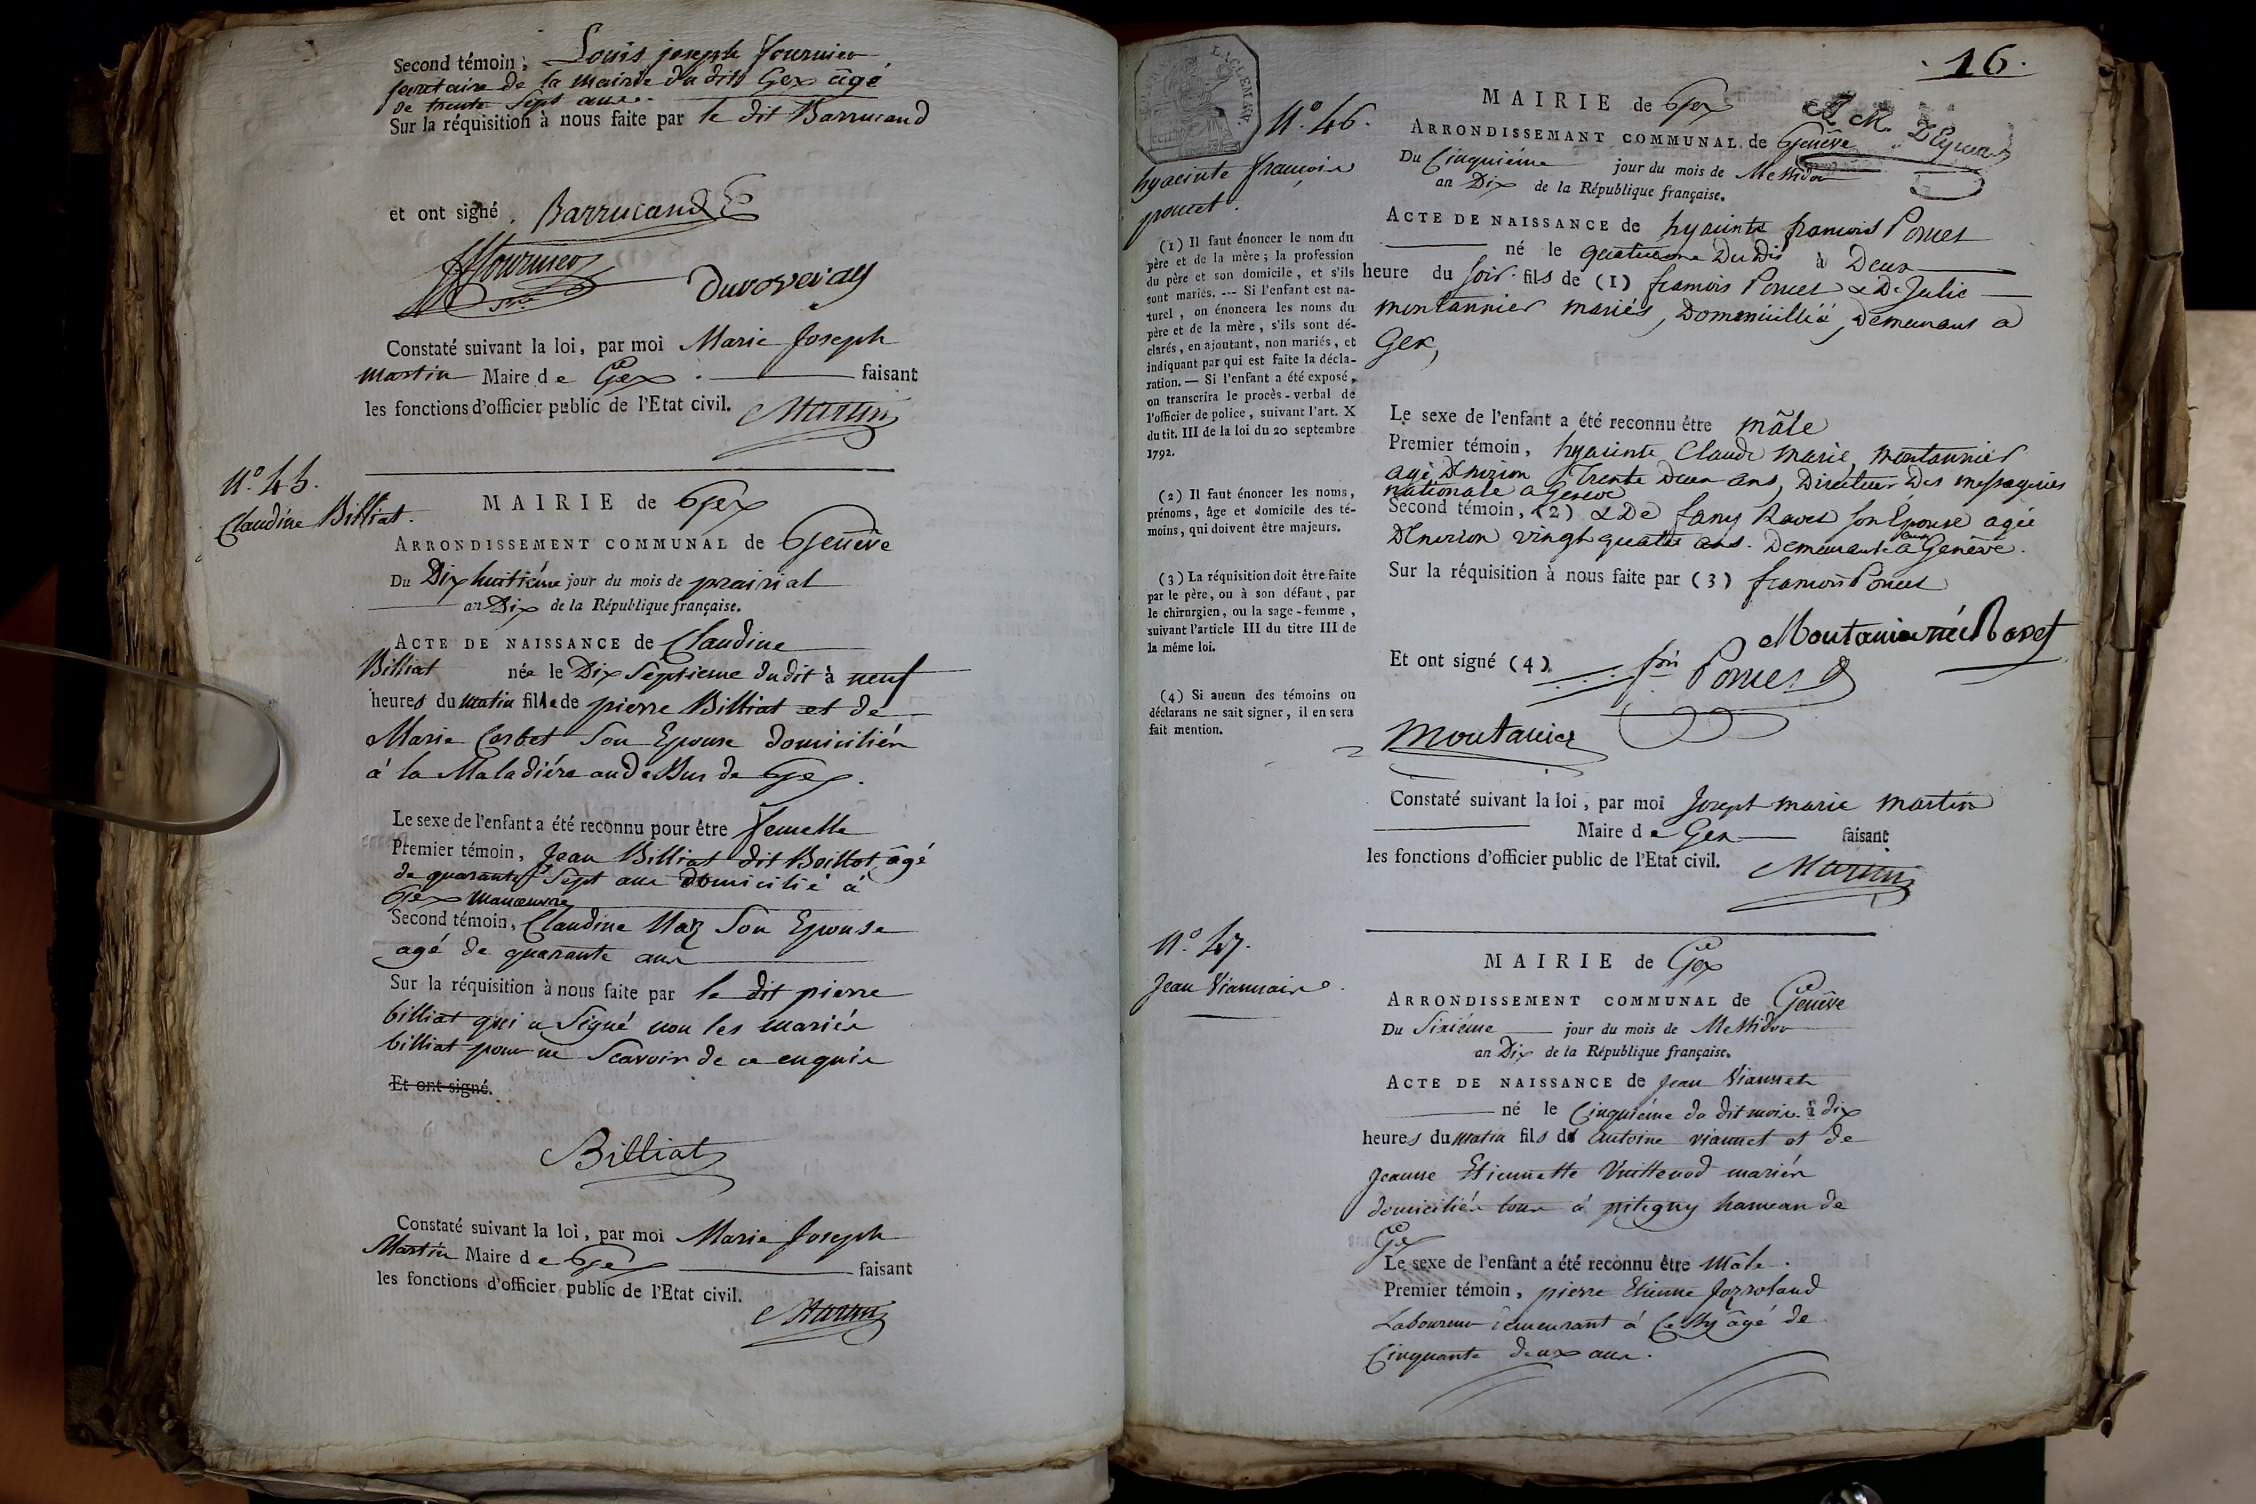 Second témoin, Louis joseph fournier
secretaire de la mairie du dit Gex âgé
de trente sept ans.
Sur la réquisition à nous faite par le dit Barrucand
et ont signé. Barrucand
fournier
Duvoveray
Constaté suivant la loi, par moi Marie Joseph
Martin Maire de Gex. faisant
les fonctions d'officier public de l'Etat civil. Martin
N.° 45.
Claudine Billiat.
MAIRIE de Gex
ARRONDISSEMENT COMMUNAL de Genêve
Du Dix huitiéme jour du mois de prairial
an Dix de la République française.
ACTE DE NAISSANCE de Claudine
Billiat née le Dix Septieme du dit à neuf
heures du matin fille de pierre Billiat et de
Marie Corbet Son Epouse domiciliés
à la Maladiére au dessus de Gex.
Le sexe de l'enfant a été reconnu pour être femelle
Premier témoin, Jean Billiat dit Boillot âgé
de quarante Sept ans domicilié à
Gex Manœuvre
Second témoin, Claudine Maz Son Epouse
agé de quarante ans
Sur la réquisition à nous faite par le dit pierre
billiat qui a Signé non les mariés
billiat pour ne Scavoir de ce enquis
Et ont signé.
Billiat
Constaté suivant la loi, par moi Marie Joseph
Martin Maire de Gex faisant
les fonctions d'officier public de l'Etat civil.
Martin
16.
N.° 46.
hyacinte francois
poncet.
(1) Il faut énoncer le nom du
père et de la mère; la profession
du père et son domicile, et s'ils
sont mariés. --- Si l'enfant est na-
turel, on énoncera les noms du
père et de la mère, s'ils sont dé-
clarés, en ajoutant, non mariés, et
indiquant par qui est faite la décla-
ration. — Si l'enfant a été exposé,
on transcrira le procès-verbal de
l'officier de police, suivant l'art. X
du tit. III de la loi du 20 septembre
1792.
(2) Il faut énoncer les noms,
prénoms, âge et domicile des té-
moins, qui doivent être majeurs.
(3) La réquisition doit être faite
par le père, ou à son défaut, par
le chirurgien, ou la sage-femme,
suivant l'article III du titre III de
la même loi.
(4) Si aucun des témoins ou
déclarans ne sait signer, il en sera
fait mention.
MAIRIE de Gex
ARRONDISSEMANT COMMUNAL de Genêve
Du Cinquiéme jour du mois de Messidor
an Dix de la République française.
ACTE DE NAISSANCE de hyacinte francois Poncet
né le quatrieme Du Dit à Deux
heure du Soir. fils de (1) francois Poncet & De Julie
montannier mariés, Dommicillié, Demeurans a
Gex,
Le sexe de l'enfant a été reconnu être mâle
Premier témoin, hyacinte Claude marie montannier
agé Denviron Trente Deux ans, Directeur Des messageries
nationale a Geneve
Second témoin, (2) & De fany Ravet son Epouse agée
Denviron vingt quatre ans. Demeurante a Genêve.
Sur la réquisition à nous faite par (3) francois Poncet
Et ont signé (4). fois Poncet
Moutanier né Ravet
Moutanier
Constaté suivant la loi, par moi Joseph marie martin
Maire de Gex faisant
les fonctions d'officier public de l'Etat civil. Martin
N.° 47.
Jean Viannaire.
MAIRIE de Gex
ARRONDISSEMENT COMMUNAL de Genêve
Du Sixiéme jour du mois de Messidor
an Dix de la République française.
ACTE DE NAISSANCE de Jean Viannet
né le Cinquiéme du dit mois à dix
heures du matin fils de Antoine viannet et de
Jeanne Etiennette Vuittenod mariés
domiciliés tous à pitegny hameau de
Gex
Le sexe de l'enfant a été reconnu être Mâle.
Premier témoin, pierre Etienne Jozroland
Laboureur demeurant à Cessy âgé de
Cinquante deux ans.